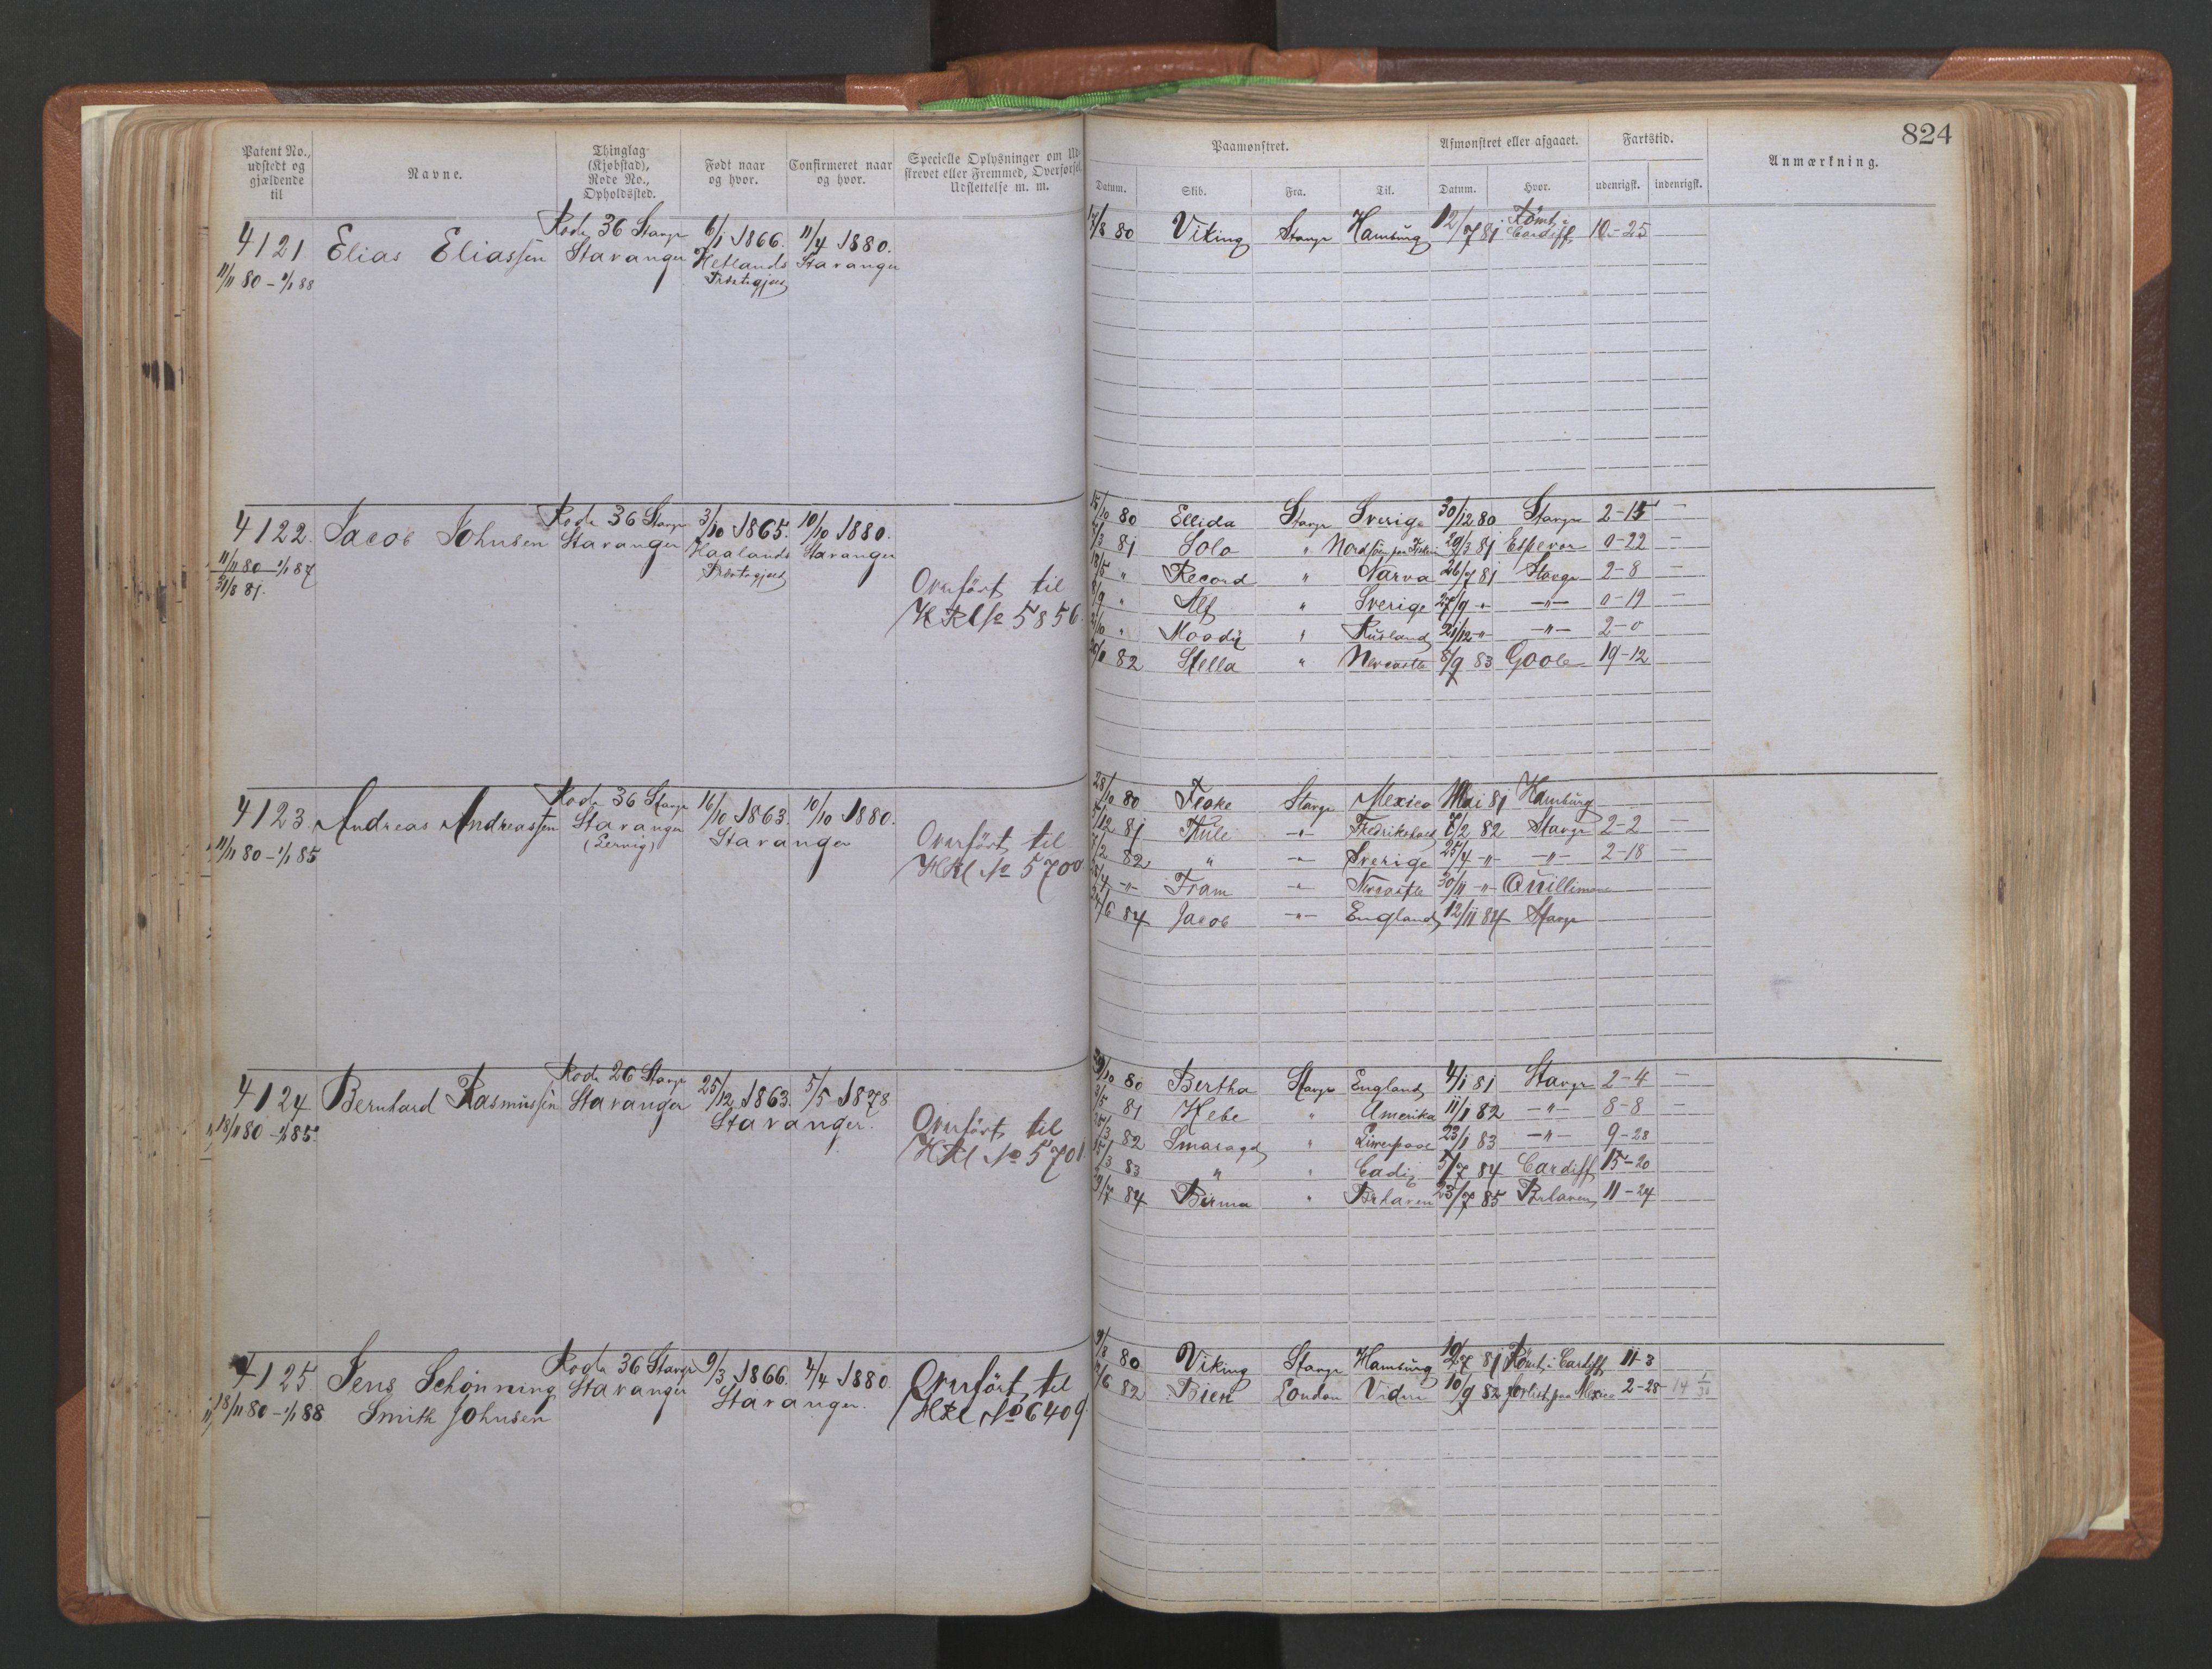 824
Patent No., udstedt og gjældende til
Navne.
Thinglag (Kjøbstad), Rode No., Opholdssted.
Født naar og hvor.
Confirmeret naar og hvor.
Specielle Oplysninger om Ud-
skrevet eller Fremmed, Overførsel,
Udslettelse m. m.
Paamønstret.
Afmønstret eller afgaaet.
Fartstid.
Anmærkning.
Datum. Skib. Fra. Til. Datum. Hvor. udenrigsk. indenrigsk.
4121 Elias Eliassen Rode 36 Stavgr 6/1 1866. 11/4 1880.
Stavanger Hetlands Stavanger
11/11 80 - 1/1 88 Præstegjeld
17/8 80 Viking Stavgr Hamburg 12/7 81 Römt i Cardiff 10-25
4122. Jacob Johnsen Rode 36 Stavgr 3/10 1865. 10/10 1880.
Stavanger Haalands Stavanger
11/11 80 - 1/1 87 Præstegjeld
31/8 81.
Overført til
HRl No 5856.
15/10 80 Ellida Stavgr Sverige 30/12 80 Stavgr 2-15 -
/3 81 Solo " Nordsøen paa Fiskeri 29/3 81 Espevær 0-22 -
18/5 " Record " Narva 26/7 81 Stavgr 2-8 -
/9 " Alf " Sverige 27/9 -"- -"- 0-19 -
/10 " Moody " Rusland 21/12 -"- -"- 2-0
/11 82 Stella " Newcastle 8/9 83 Goole 19-12
4123. Andreas Andreassen Rode 36 Stavgr 16/10 1863. 10/10 1880.
Stavanger Stavanger
(Lervig)
11/11 80 - 1/1 85
Overført til
HRl No 5700
28/10 80 Floke Stavgr Mexico Mai 81 Hamburg
/12 81 Thule -"- Fredrikstad 7/2 82 Stavgr 2-2 -
7/2 82 " -"- Sverige 25/4 -"- -"- 2-18 -
/4 -"- Fram -"- Newcastle 30/11 -"- Quillimane
/6 84 Jacob -"- England 12/11 84 Stavgr
4124 Bernhard Rasmussen Rode 26 Stavgr 25/12 1863. 5/5 1878
Stavanger Stavanger.
18/11 80 - 1/1 85.
Overført til
HRl No 5701.
/10 80 Bertha Stavgr England 4/1 81 Stavgr 2-4 -
/5 81 Hebe " Amerika 11/1 82 -"- 8-8 -
/3 82 Smaragd " Liverpool 23/1 83 -"- 9-28
/3 83 " " Cadiz 5/7 84 Cardiff 15-20
/7 84 Birma " Brhaven 23/7 85 Brhaven 11-24
4125. Jens Schönning Rode 36 Stavgr 9/3 1866. 4/4 1880.
Smith Johnsen Stavanger Stavanger.
18/11 80 - 1/1 88
Overført til
HRl No 6409.
9/8 80 Viking Stavgr Hamburg 12/7 81 Römt i Cardiff 11-3
/6 82 Bien London Vidre 10/9 82 forlist paa Mexico 2-28